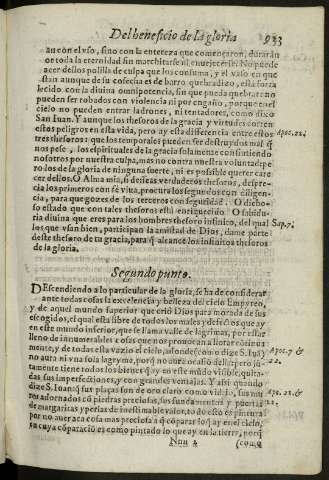 Del beneficio de la gloria 933
aun con el vso, sino con la entereza que començaron, durarán
por toda la eternidad sin marchitarse ni enuejecerse. No puede
nacer dellos polilla de culpa que los consuma, y el vaso en que
están aunque de su cosecha es de barro quebradizo, está forta
lecido con la diuina omnipotencia, sin que pueda quebrar: no
pueden ser robados con violencia ni por engaño, porque en el
cielo no pueden entrar ladrones, ni tentadores, como dixo
San Iuan. Y aunque los thesoros de la gracia y virtudes corren
estos peligros en esta vida, pero ay esta differencia entre estos Apoc. 22.
tres thesoros: que los temporales pueden ser destruydos mal q̃
nos pese, y los espirituales de la gracia solamente consintiendo
nosotros por nuestra culpa, mas no contra nuestra voluntad: pe
ro los de la gloria de ninguna suerte, ni es possible querer care
cer dellos. O Alma mia, si desseas verdaderos thesoros, despre-
cia los primeros con fè viua, procura los segundos con diligen-
cia, para que gozes de los terceros con seguridad. O dicho-
so estado que con tales thesoros está enriquecido. O sabidu-
ria diuina que eres para los hombres thesoro infinito, del qual Sap. 7.
los que vsan bien, participan la amistad de Dios, dame parte
deste thesoro de tu gracia, para q̃ alcance los infinitos thesoros
de la gloria.
Segundo punto.
DEscendiendo a lo particular de la gloria, se ha de considerar
ante todas cosas la excelencia y belleza del cielo Empyreo,
y de aquel mundo superior que crió Dios para morada de sus
escogidos, el qual esta libre de todos los males y defectos que ay
en este mundo inferior, que se llama valle de lagrimas, por estar
lleno de innumerables cosas que nos prouocan a llorar cótinua
mente, y de todas esta vazio el cielo, adonde (como dize S. Iuã) Apoc. 7. &
no aura ni vna sola lagryma, porq̃ no aura ocasiõ della: pero jú- 21.
tamente tiene todos los bienes q̃ ay en este mũdo visible, quita-
das sus imperfectiones, y con grandes ventajas. Y assi quando
dize S. Ioanq̃ sus plaças son de oro claro como vidrio, sus mu Apo. 21. &
ros adornados cõ piedras preciosas, sus fundamentos y puertas 22.
de margaritas y perlas de inestimable valor, todo esto es pintura,
por no auer aca cosa mas preciosa a q̃ cõparar lo q̃ ay en el cielo,
en cuya cõparaciõ es como pintado lo que ay en la tierra, porq̃
Nnn 3 (como